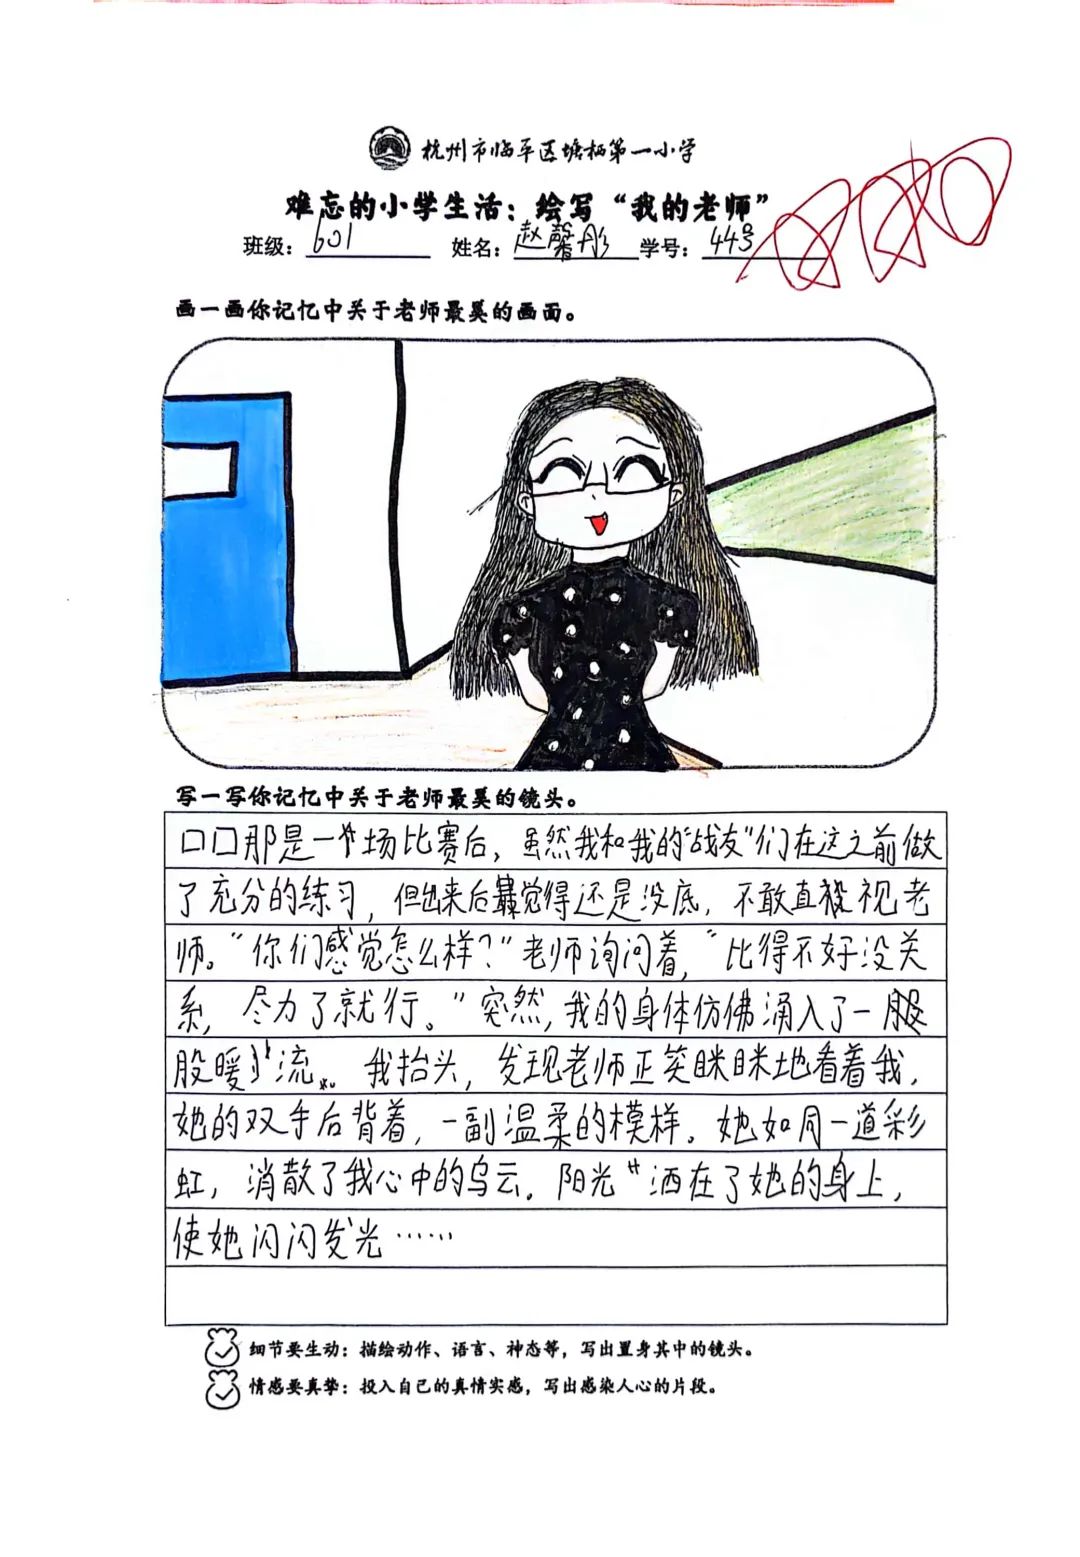 杭州市临平区塘栖第一小学
难忘的小学生活：绘写“我的老师”
班级：601 姓名：赵馨彤 学号：44号
画一画你记忆中关于老师最美的画面。
写一写你记忆中关于老师最美的镜头。
口口那是一场比赛后，虽然我和我的“战友”们在这之前做
了充分的练习，但出来后觉得还是没底，不敢直视老
师。“你们感觉怎么样？”老师询问着，“比得不好没关
系，尽力了就行。”突然，我的身体仿佛涌入了一股
股暖流。我抬头，发现老师正笑眯眯地看着我，
她的双手后背着，一副温柔的模样。她如同一道彩
虹，消散了我心中的乌云。阳光洒在了她的身上，
使她闪闪发光……
细节要生动：描绘动作、语言、神态等，写出置身其中的镜头。
情感要真挚：投入自己的真情实感，写出感染人心的片段。